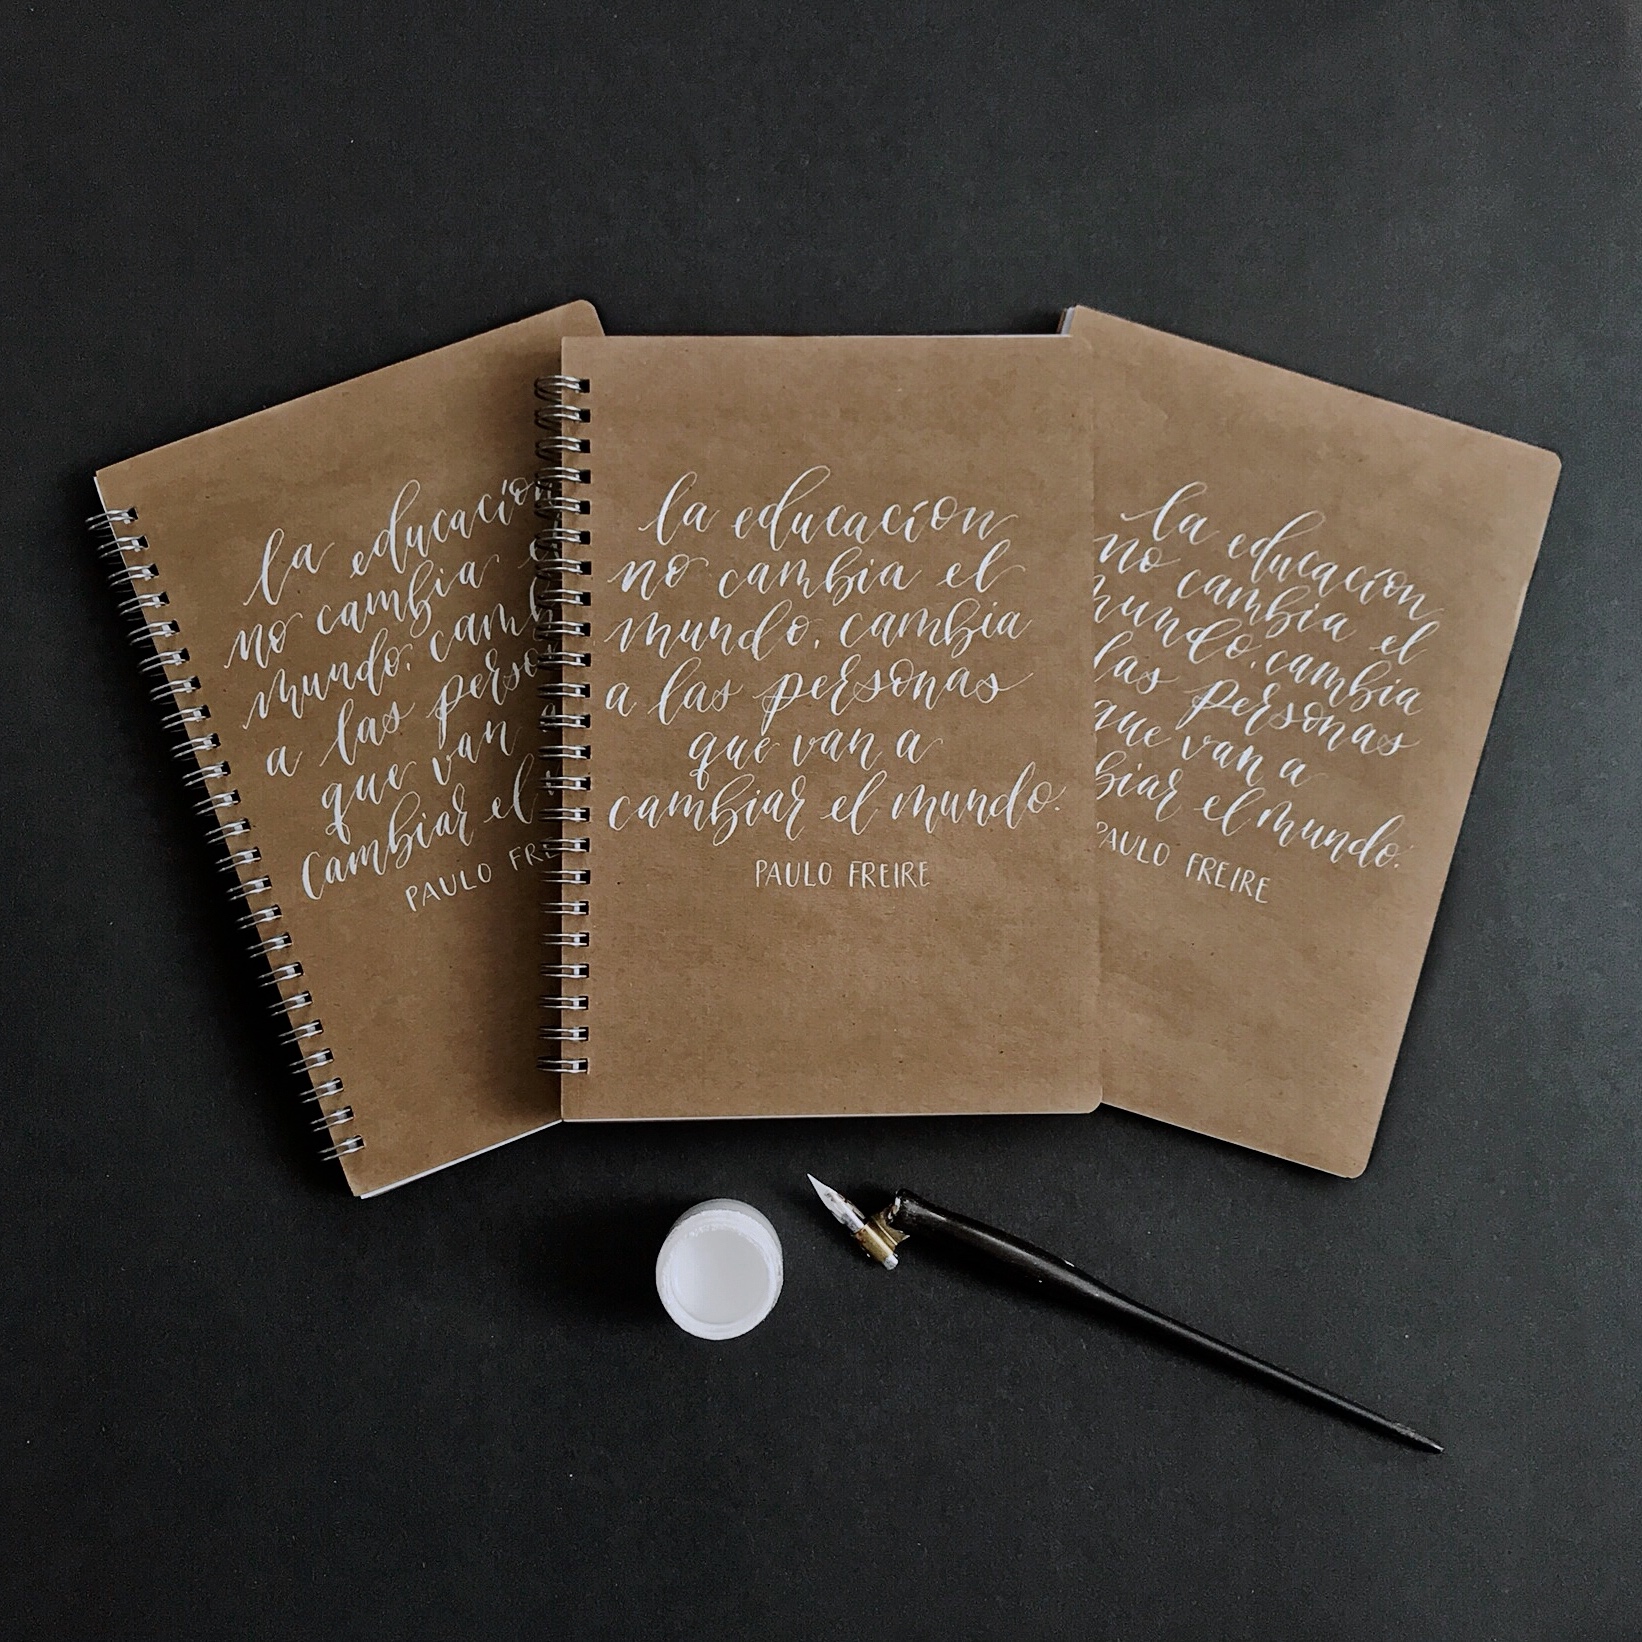 la educación
no cambia e
mundo, camb
a las perso
que van
cambiar el
PAULO FRE
la educación
no cambia el
mundo, cambia
a las personas
que van a
cambiar el mundo.
PAULO FREIRE
la educación
no cambia el
mundo, cambia
las personas
que van a
biar el mundo.
PAULO FREIRE